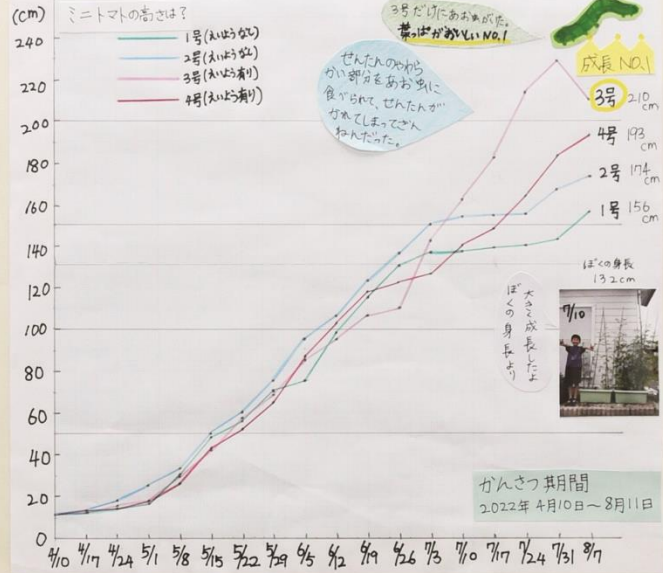 (cm)
ミニトマトの高さは?
1号(えいようなし)
2号(えいようなし)
3号(えいよう有り)
4号(えいよう有り)
3号だけにあお虫がた。
葉っぱがおいしいNO.1
成長 NO.1
せんたんのやわら
かい部分をあお虫に
食べられて、せんたんが
かれてしまってざん
ねんだった。
3号 210cm
4号 193cm
2号 174cm
1号 156cm
ぼくの身長
132cm
大きく成長したよ
ぼくの身長より
7/10
かんさつ期間
2022年 4月10日~8月11日
240
220
200
180
160
140
120
100
80
60
40
20
0
4/10 4/17 4/24 5/1 5/8 5/15 5/22 5/29 6/5 6/12 6/19 6/26 7/3 7/10 7/17 7/24 7/31 8/7